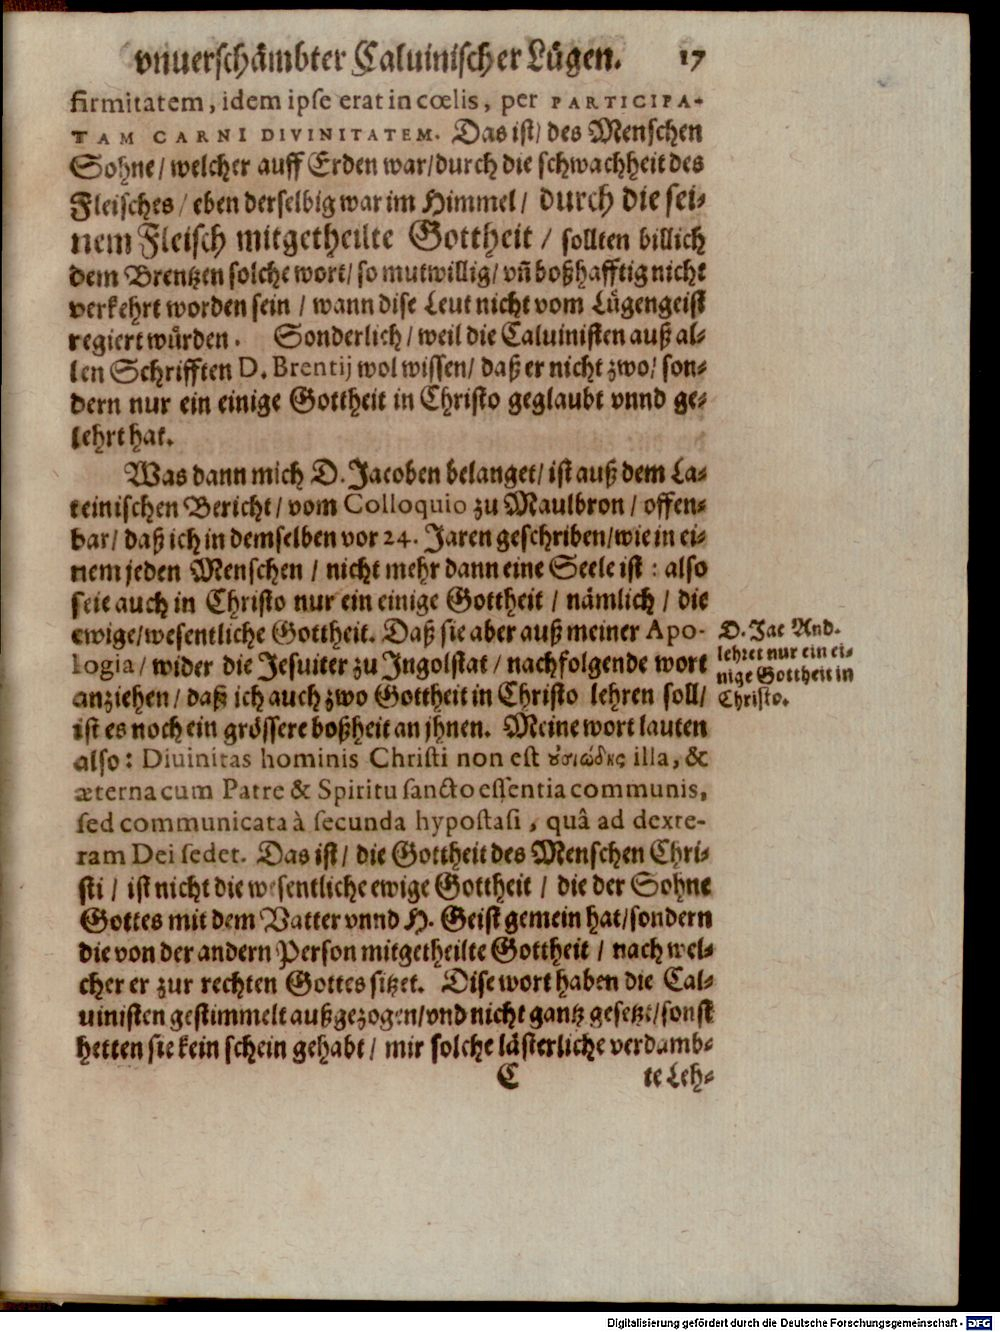 vnuerschämbter Caluinischer Lügen. 17
firmitatem, idem ipse erat in cœlis, per PARTICIPA-
TAM CARNI DIVINITATEM. Das ist/ des Menschen
Sohne/ welcher auff Erden war/durch die schwachheit des
Fleisches/ eben derselbig war im Himmel/ durch die sei-
nem Fleisch mitgetheilte Gottheit/ sollten billich
dem Brentzen solche wort/ so mutwillig/ vñ boßhafftig nicht
verkehrt worden sein/ wann dise Leut nicht vom Lügengeist
regiert würden. Sonderlich/ weil die Caluinisten auß al-
len Schrifften D. Brentij wol wissen/ daß er nicht zwo/ son-
dern nur ein einige Gottheit in Christo geglaubt vnnd ge-
lehrt hat.
Was dann mich D. Jacoben belanget/ ist auß dem La-
teinischen Bericht/ vom Colloquio zu Maulbron/ offen-
bar/ daß ich in demselben vor 24. Jaren geschriben/wie in ei-
nem jeden Menschen/ nicht mehr dann eine Seele ist: also
seie auch in Christo nur ein einige Gottheit/ nämlich/ die
ewige/wesentliche Gottheit. Daß sie aber auß meiner Apo-
logia/ wider die Jesuiter zu Jngolstat/ nachfolgende wort
anziehen/ daß ich auch zwo Gottheit in Christo lehren soll/
ist es noch ein grössere boßheit an jhnen. Meine wort lauten
also: Diuinitas hominis Christi non est οὐσιώδης illa, &
æterna cum Patre & Spiritu sancto essentia communis,
sed communicata à secunda hypostasi, quâ ad dexte-
ram Dei sedet. Das ist/ die Gottheit des Menschen Chri-
sti/ ist nicht die wesentliche ewige Gottheit/ die der Sohne
Gottes mit dem Vatter vnnd H. Geist gemein hat/sondern
die von der andern Person mitgetheilte Gottheit/ nach wel-
cher er zur rechten Gottes sitzet. Dise wort haben die Cal-
uinisten gestimmelt außgezogen/vnd nicht gantz gesetzt/sonst
hetten sie kein schein gehabt/ mir solche lästerliche verdamb-
C te Leh-
D. Jac And.
lehret nur ein ei-
nige Gottheit in
Christo.
Digitalisierung gefördert durch die Deutsche Forschungsgemeinschaft - DFG